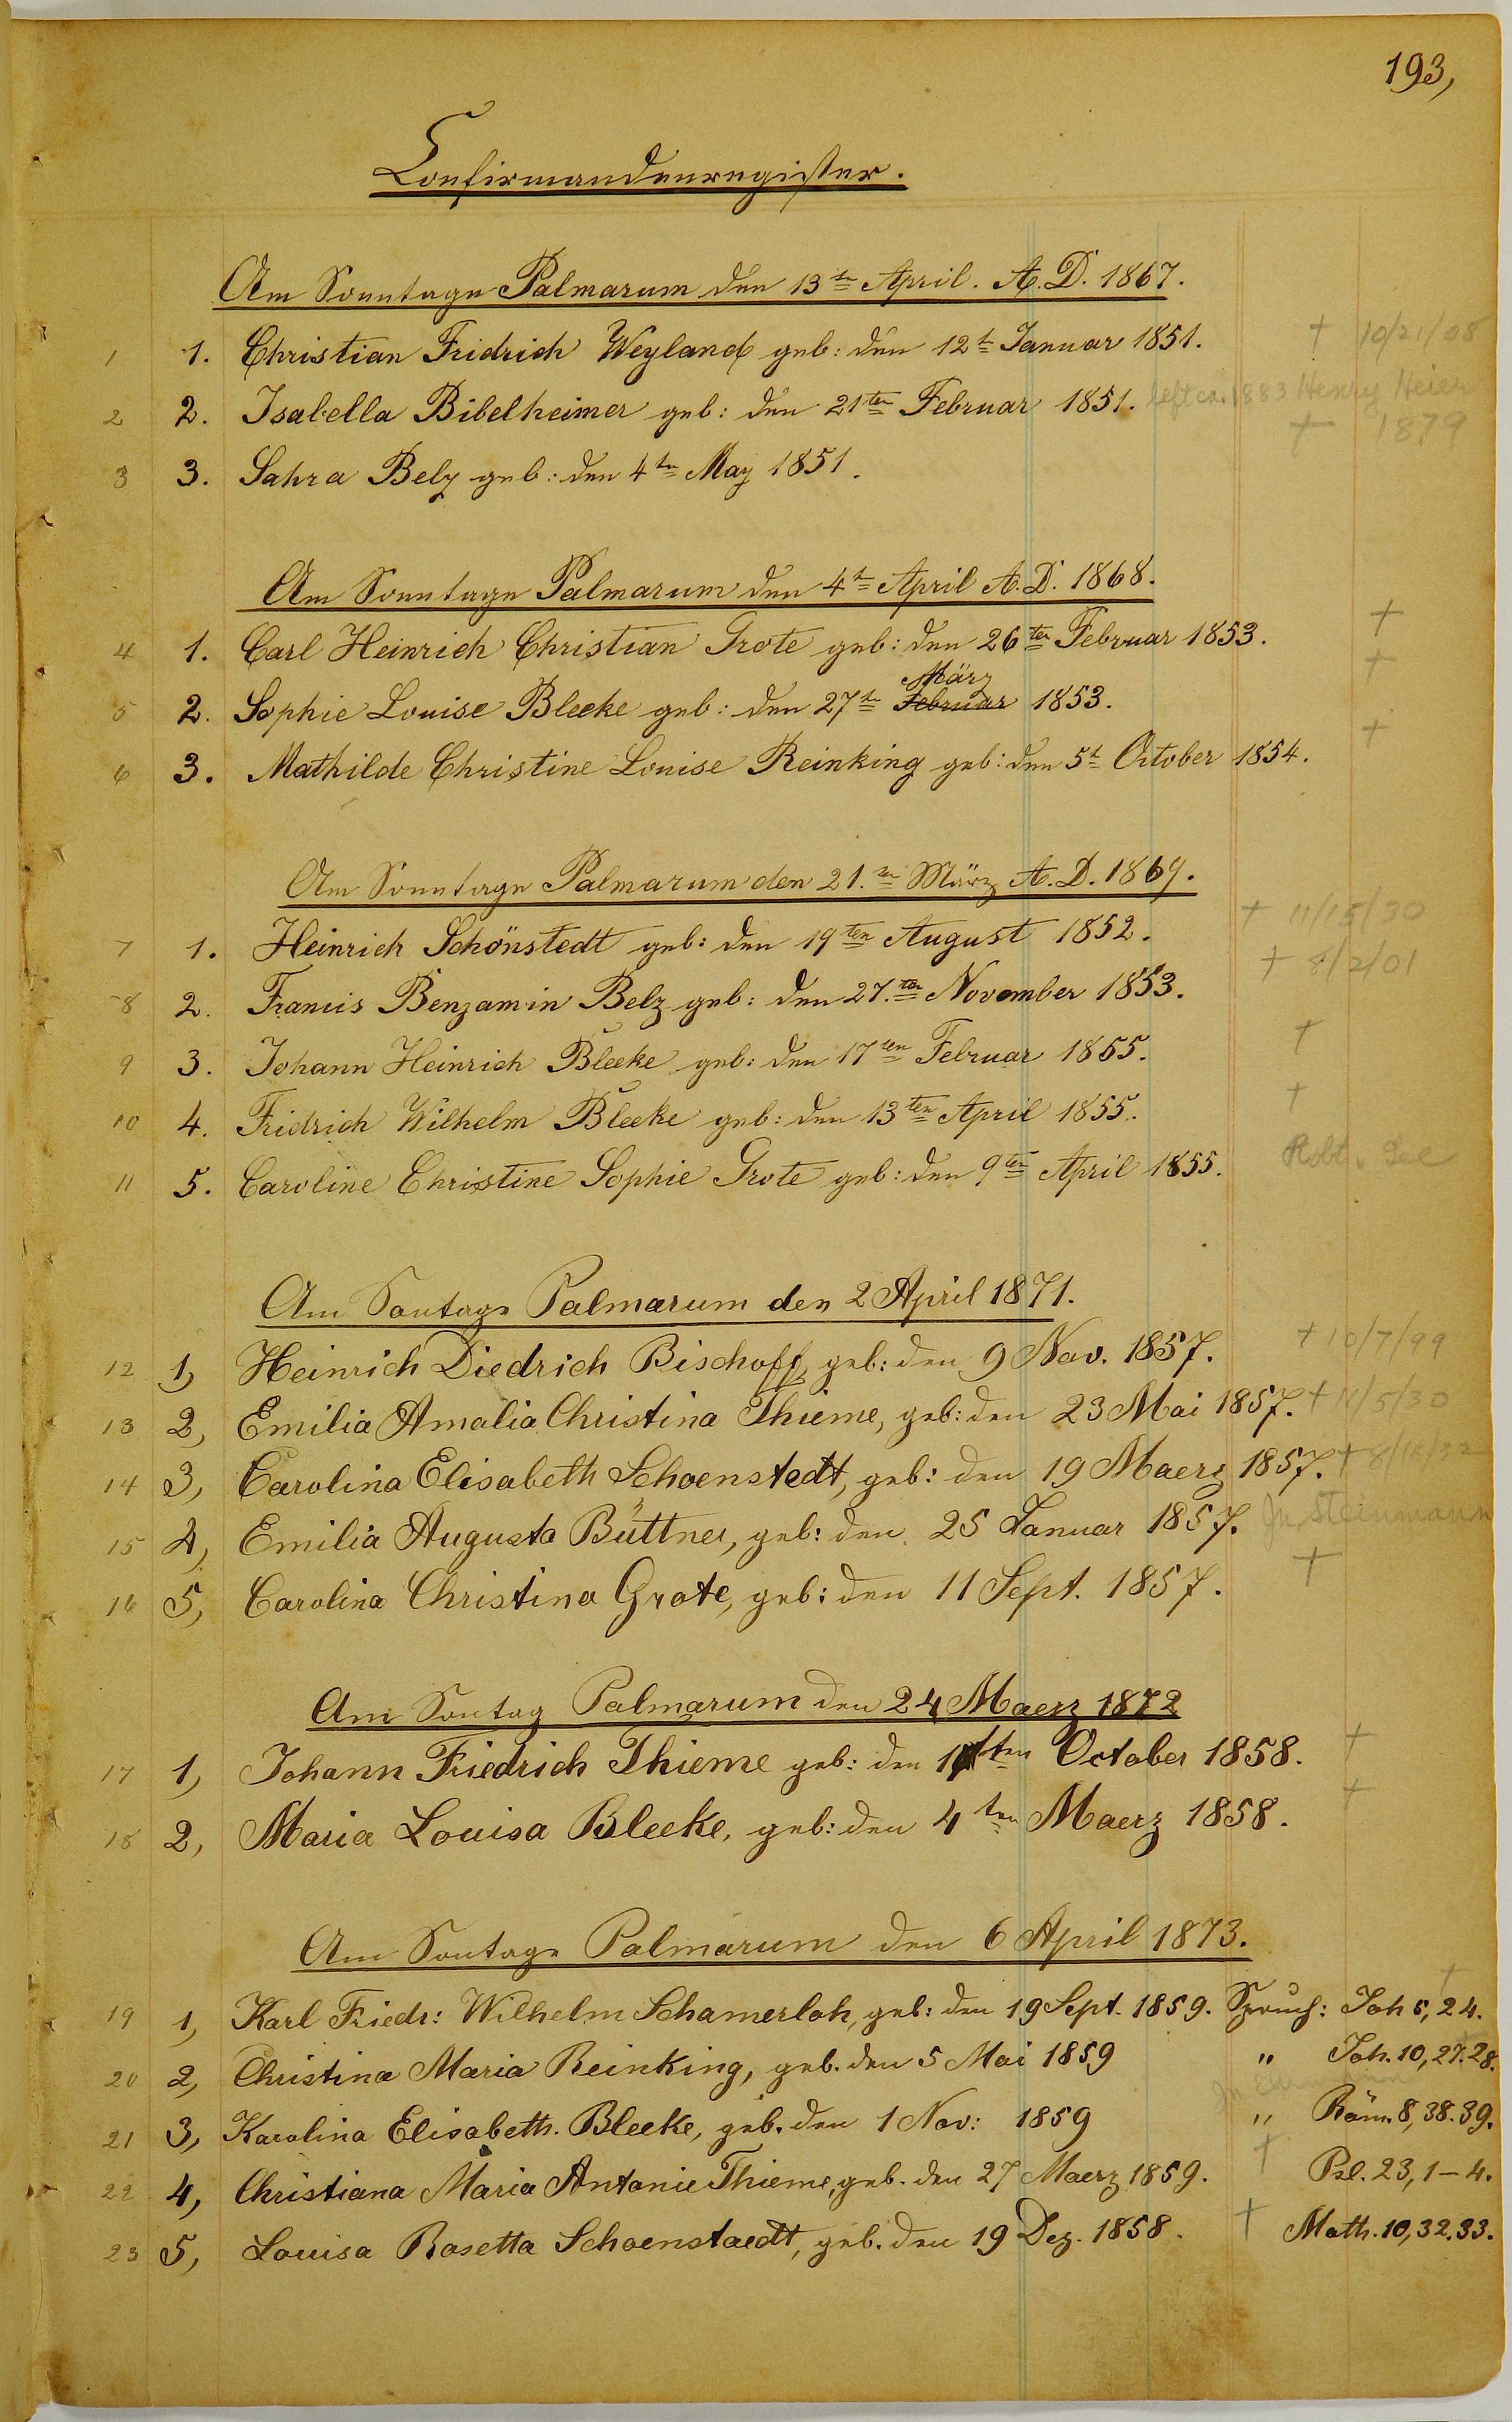 193,
Confirmandenregister.
Am Sonntage Palmarum den 13tn April. A. D. 1867.
1 1. Christian Fridrich Weyland geb: den 12t Januar 1851. † 10/21/08
2 2. Isabella Bibelheimer geb: den 21ten Februar 1851. left ca. 1883 Henry Heier
† 1879
3 3. Sahra Belz geb: den 4tn May 1851.
Am Sonntage Palmarum den 4tn April A. D. 1868.
4 1. Carl Heinrich Christian Grote geb: den 26ten Februar 1853. †
März
5 2. Sophie Louise Bleeke geb: den 27tn Februar 1853. †
6 3. Mathilde Christine Louise Reinking geb: den 5t October 1854. †
Am Sonntage Palmarum den 21.tn März A. D. 1869.
7 1. Heinrich Schönstedt geb: den 19ten August 1852. † 11/15/30
8 2. Francis Benjamin Belz geb: den 27.ten November 1853. † 8/2/01
9 3. Johann Heinrich Bleeke geb: den 17ten Februar 1855. †
10 4. Fridrich Wilhelm Bleeke geb: den 13ten April 1855. †
11 5. Caroline Christine Sophie Grote geb: den 9ten April 1855. Robt.
Am Sontage Palmarum den 2 April 1871.
12 1, Heinrich Diedrich Bischoff, geb: den 9 Nov. 1857. † 10/7/99
13 2, Emilia Amalia Christina Thieme, geb: den 23 Mai 1857. † 11/5/30
14 3, Carolina Elisabeth Schoenstedt, geb: den 19 Maerz 1857. † 8/16/32
15 4, Emilia Augusta Büttner, geb: den 25 Januar 1857. Steinmann
16 5, Carolina Christina Grote, geb: den 11 Sept. 1857. †
Am Sontag Palmarum den 24 Maerz 1872
17 1, Johann Friedrich Thieme geb: den ten October 1858. †
18 2, Maria Louisa Bleeke, geb: den 4ten Maerz 1858. †
Am Sontage Palmarum den 6 April 1873.
19 1, Karl Friedr: Wilhelm Schamerloh, geb: den 19 Sept. 1859. Spruch: Joh 5, 24. †
20 2, Christina Maria Reinking, geb. den 5 Mai 1859 " Joh. 10, 27.28.
21 3, Karolina Elisabeth. Bleeke, geb. den 1 Nov: 1859 " Röm. 8, 38.39.
22 4, Christiana Maria Antonie Thieme, geb. den 27 Maerz 1859. † Psl. 23, 1–4.
23 5, Louisa Rosetta Schoenstaedt, geb. den 19 Dez. 1858. † Math. 10, 32.33.